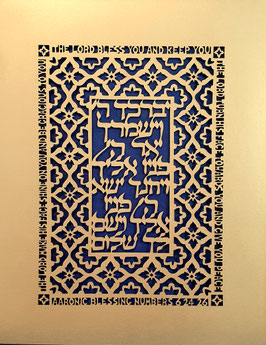 THE LORD BLESS YOU AND KEEP YOU
יברכך
וישמרך
יאר
פניו אליך
ויחנך ישא
פניו
וישם
לך שלום
THE LORD MAKE HIS FACE SHINE ON YOU AND BE GRACIOUS TO YOU
THE LORD TURN HIS FACE TOWARDS YOU AND GIVE YOU PEACE
AARONIC BLESSING NUMBERS 6 24 26